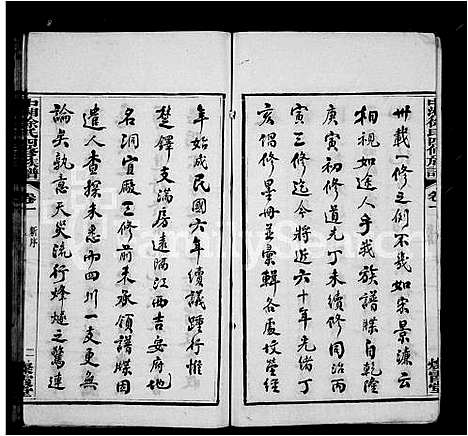 卅載一修之例不幾如宋景濂云
相視如途人乎我族譜牒自乾隆
庚寅初修道光丁未續修同治丙
寅三修迄今將近六十年光緒丁
亥修冊並彙輯各處墳塋經
年始成民國六年續議踵行惟
楚鐸支滿房遠隔江西吉安府地
名洞宜廠三修前未承領譜牒因
遣人查探未悉而四川一支更無
論矣孰意天災流行烽燧之驚連
氏四修族譜
卷一
新序
二
堂